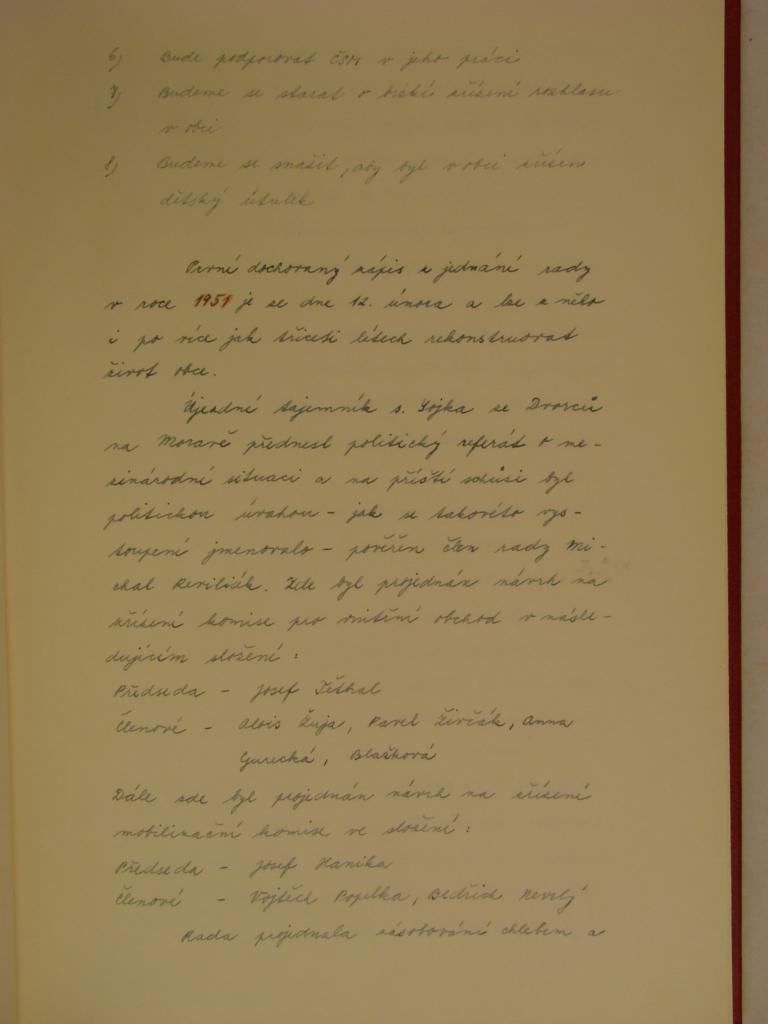 6) Bude podporovat ČSM v jeho práci
7) Budeme se starat o brzké zřízení rozhlasu
v obci
8) Budeme se snažit, aby byl v obci zřízen
dětský útulek
První dochovaný zápis z jednání rady
v roce 1951 je ze dne 12. února a lze z něho
i po více jak třiceti létech rekonstruovat
život obce.
Újezdně tajemník s. Sojka ze Dvorců
na Moravě přednesl politický referát o me-
zinárodní situaci a na příští schůzi byl
politickou úvahou - jak se takovéto vys-
toupení jmenovalo - pověřen člen rady Mi-
chal. Zde byl projednán návrh na
zřízení komise pro vnitřní obchod v násle-
dujícím složení:
Předseda - Josef Těthal
Členové - Alois Žuja, Pavel Živčák, Anna
Gurecká, Blašková
Dále zde byl projednán návrh na zřízení
mobilizační komise ve složení:
Předseda - Josef Hanika
Členové - Vojtěch Popelka, Bedřich Nevrlý
Rada projednala zásobování chlebem a